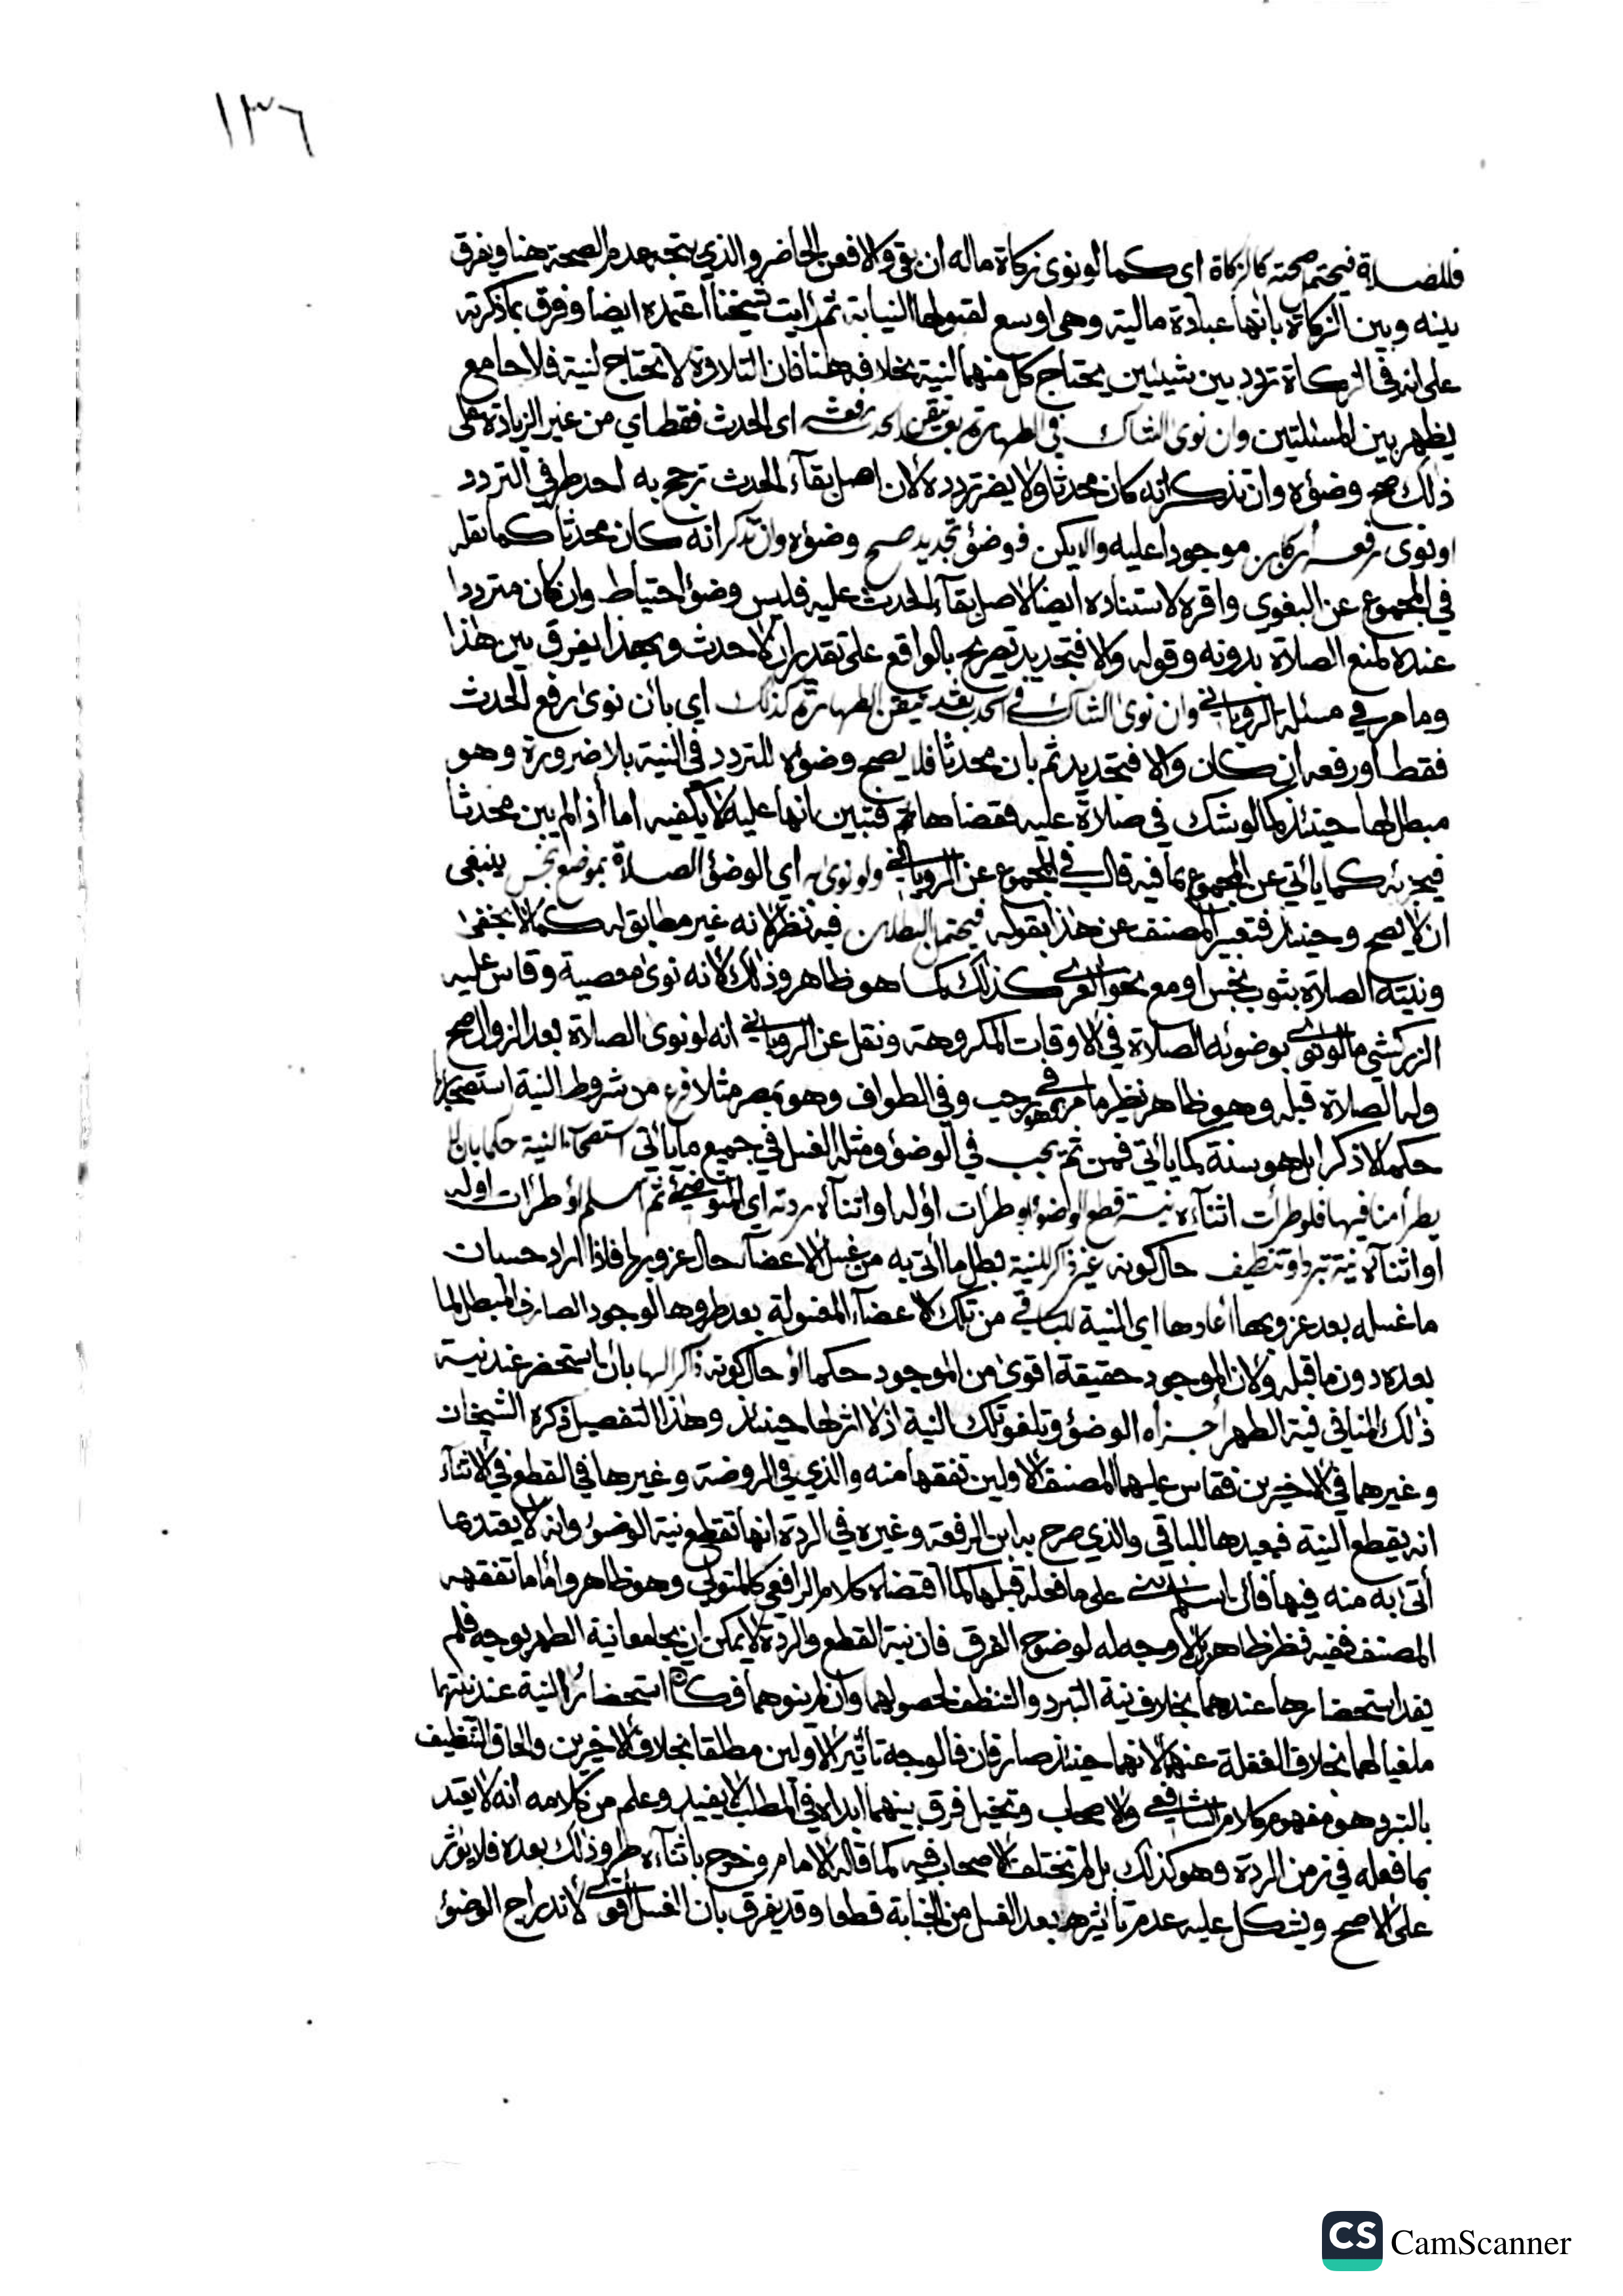 ١٣٦
فللصلاة فيحتمل صحته كالزكاة اى كما لو نوى زكاة ماله ان بقى والا فعن الحاضر والذي يتجه عدم الصحة هنا ويفرق
بينه وبين الزكاة بانها عبادة مالية وهى اوسع لقبولها النيابة ثم رايت شيخنا اعتمده ايضا وفرق بما ذكرته
على انه في الزكاة تردد بين شيئين يحتاج كل منهما لنية بخلافه هنا فان التلاوة لا تحتاج لنية فلا جامع
يظهر بين المسئلتين وان نوى الشاك في الطهارة بعد تيقن الحدث رفعه اى الحدث فقط اي من غير الزيادة على
ذلك صح وضؤه وان تذكر انه كان محدثا ولا يضر تردده لان اصل بقآء الحدث ترجح به احد طرفي التردد
او نوى رفعه ان كان موجودا عليه والا يكن فوضؤ تجديد صح وضؤه وان تذكر انه كان محدثا كما نقله
في المجموع عن البغوي واقره لاستناده ايضا لاصل بقآء الحدث عليه فليس وضؤ احتياط وان كان مترددا
عنده لمنع الصلاة بدونه وقوله والا فتجديد تصريح بالواقع على تقدير ان لا حدث وبهذا يفرق بين هذا
وما مر في مسئلة الروياني وان نوى الشاك في الحدث بعد تيقن الطهارة كذلك اي بان نوى رفع الحدث
فقط او رفعه ان كان والا فتجديد ثم بان محدثا فلا يصح وضؤه للتردد في النية بلا ضرورة وهو
مبطل لها حينئذ كما لو شك في صلاة عليه فقضاها ثم تبين انها عليه لا يكفيه اما اذا لم يبن محدثا
فيجزئه كما يأتي عن المجموع بما فيه قال في المجموع عن الروياني ولو نوى به اي الوضؤ الصلاة بموضع نجس ينبغى
ان لا يصح وحينئذ فتعبير المصنف عن هذا بقوله فيحتمل البطلان فيه نظر لانه غير مطابق له كما لا يخفى
ونيته الصلاة بثوب نجس او مع نحو العرى كذلك كما هو ظاهر وذلك لانه نوى معصية وقاس عليه
الزركشي ما لو نوى بوضوئه الصلاة في الاوقات المكروهة ونقل عن الروياني انه لو نوى الصلاة بعد الزوال صح
وله الصلاة قبله وهو ظاهر نظير ما مر في رجب وفي الطواف وهو بمصر مثلا فرع من شروط النية استصحابها
حكما لا ذكرا بل هو سنة كما يأتي فمن ثم يجب في الوضؤ ومثله الغسل في جميع ما يأتي استصحاب النية حكما بان لا
يطرأ مناف فيها فلو طرأت اثنآءه نية قطع الوضؤ او طرأت اوله او اثنآءه ردته اي المتوضئ ثم اسلم او طرأت اوله
او اثنآءه نية تبرد او تنظيف حال كونه غير ذاكر للنية بطل ما اتى به من غسل الاعضآء حال عزوبها فاذا اراد حسبان
ما غسله بعد عزوبها اعادها اى النية للباقى من تلك الاعضآء المغسولة بعد طروها لوجود الصارف المبطل لما
بعده دون ما قبله ولان الموجود حقيقة اقوى من الموجود حكما او حال كونه ذاكرا لها بان استحضر عند نية
ذلك المنافي نية الطهر اجزأه الوضؤ وتلغو تلك النية اذ لا اثر لها حينئذ وهذا التفصيل ذكره الشيخان
وغيرهما في الاخيرين فقاس عليهما المصنف الاولين تفقها منه والذي في الروضة وغيرها في القطع في الاثنآء
انه يقطع النية فيعيدها للباقي والذي صرح به ابن الرفعة وغيره في الردة انها تقطع نية الوضؤ وانه لا يعتد بما
أتى به منه فيها فان اسلم بنى على ما فعله قبلها كما اقتضاه كلام الرافعي كالمتولي وهو ظاهر واما ما تفقهه
المصنف ففيه نظر ظاهر بل لا وجه له لوضوح الفرق فان نية القطع والردة لا يمكن ان يجامعا نية الطهر بوجه فلم
يفد استحضارها عندهما بخلاف نية التبرد والتنظف لحصولهما وان لم ينوهما فكان استحضار النية عند نيتهما
ملغيا لهما بخلاف الغفلة عنها لانهما حينئذ صارفان فالوجه تأثير الاولين مطلقا بخلاف الاخيرين والحاق التنظيف
بالتبرد هو مفهوم كلام الشافعي والاصحاب وتخيل فرق بينهما ابداه في المطلب لا يفيد وعلم من كلامه انه لا يعتد
بما فعله في زمن الردة وهو كذلك بل لم تختلف الاصحاب فيه كما قاله الامام وخرج باثنآءه طرو ذلك بعده فلا يؤثر
على الاصح ويشكل عليه عدم تأثيرها بعد الغسل من الجنابة قطعا وقد يفرق بان الغسل اقوى لاندراج الوضؤ
CS CamScanner